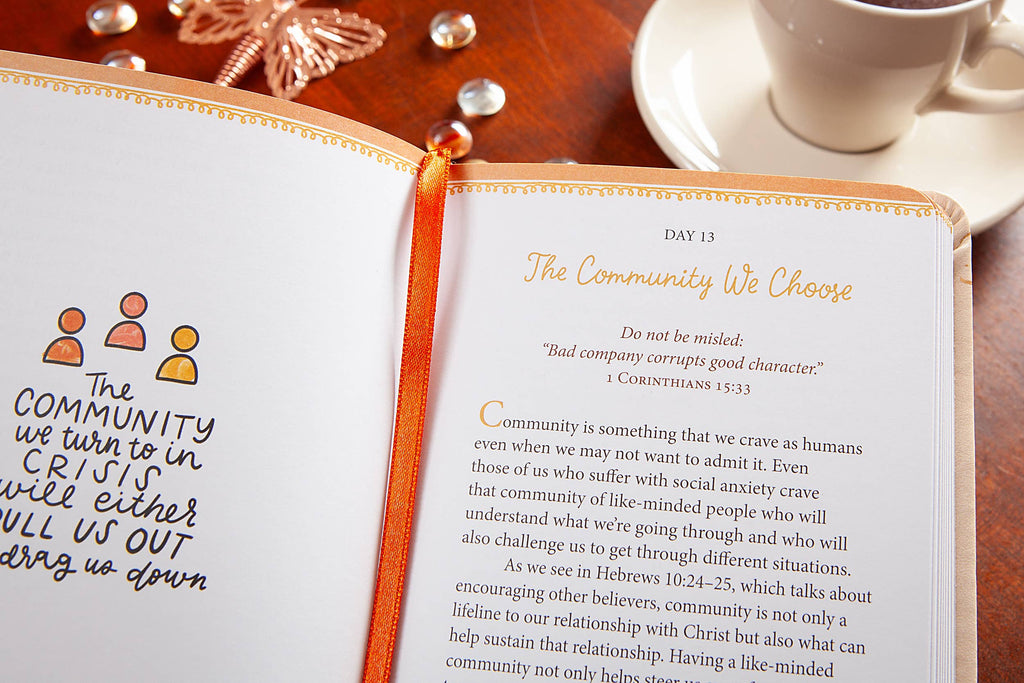 The
COMMUNITY
we turn to in
CRISIS
will either
PULL US OUT
drag us down
DAY 13
The Community We Choose
Do not be misled:
“Bad company corrupts good character.”
1 Corinthians 15:33
Community is something that we crave as humans
even when we may not want to admit it. Even
those of us who suffer with social anxiety crave
that community of like-minded people who will
understand what we’re going through and who will
also challenge us to get through different situations.
As we see in Hebrews 10:24–25, which talks about
encouraging other believers, community is not only a
lifeline to our relationship with Christ but also what can
help sustain that relationship. Having a like-minded
community not only helps steer us